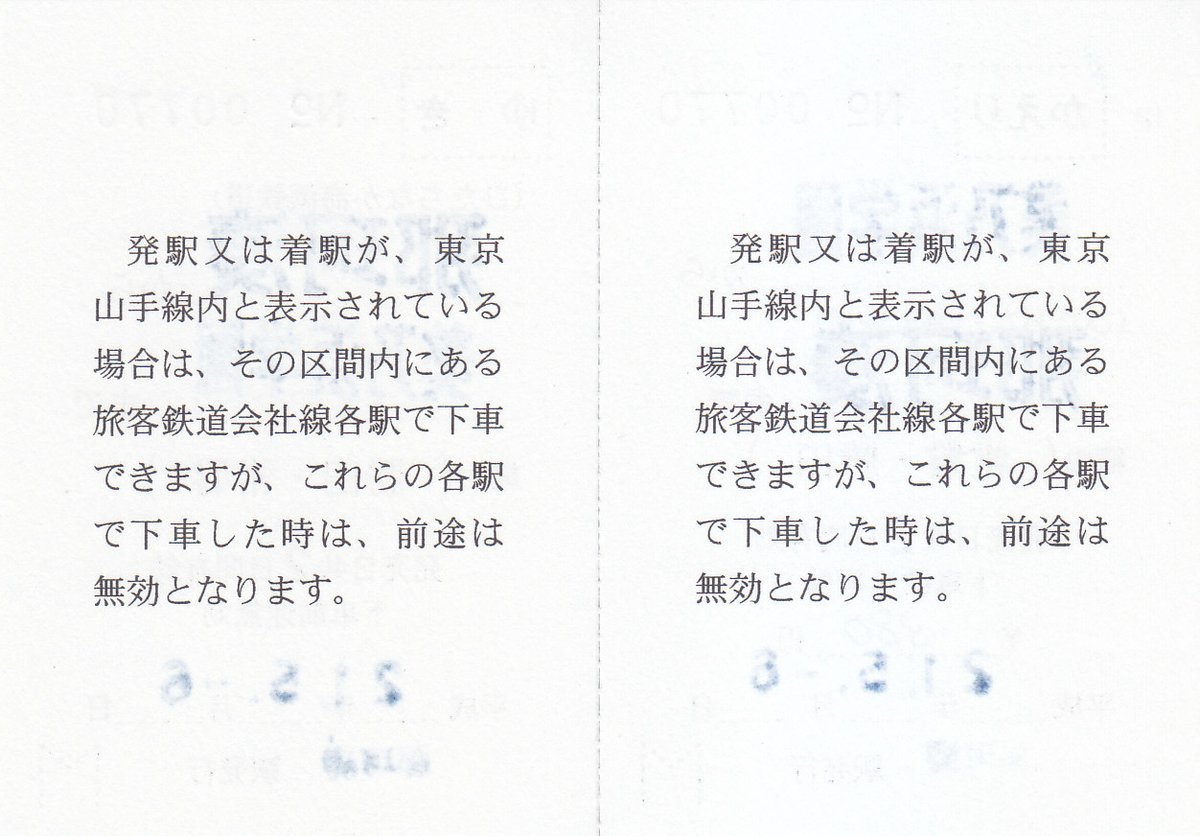 発駅又は着駅が、東京
山手線内と表示されている
場合は、その区間内にある
旅客鉄道会社線各駅で下車
できますが、これらの各駅
で下車した時は、前途は
無効となります。
21.5.-6
発駅又は着駅が、東京
山手線内と表示されている
場合は、その区間内にある
旅客鉄道会社線各駅で下車
できますが、これらの各駅
で下車した時は、前途は
無効となります。
21.5.-6